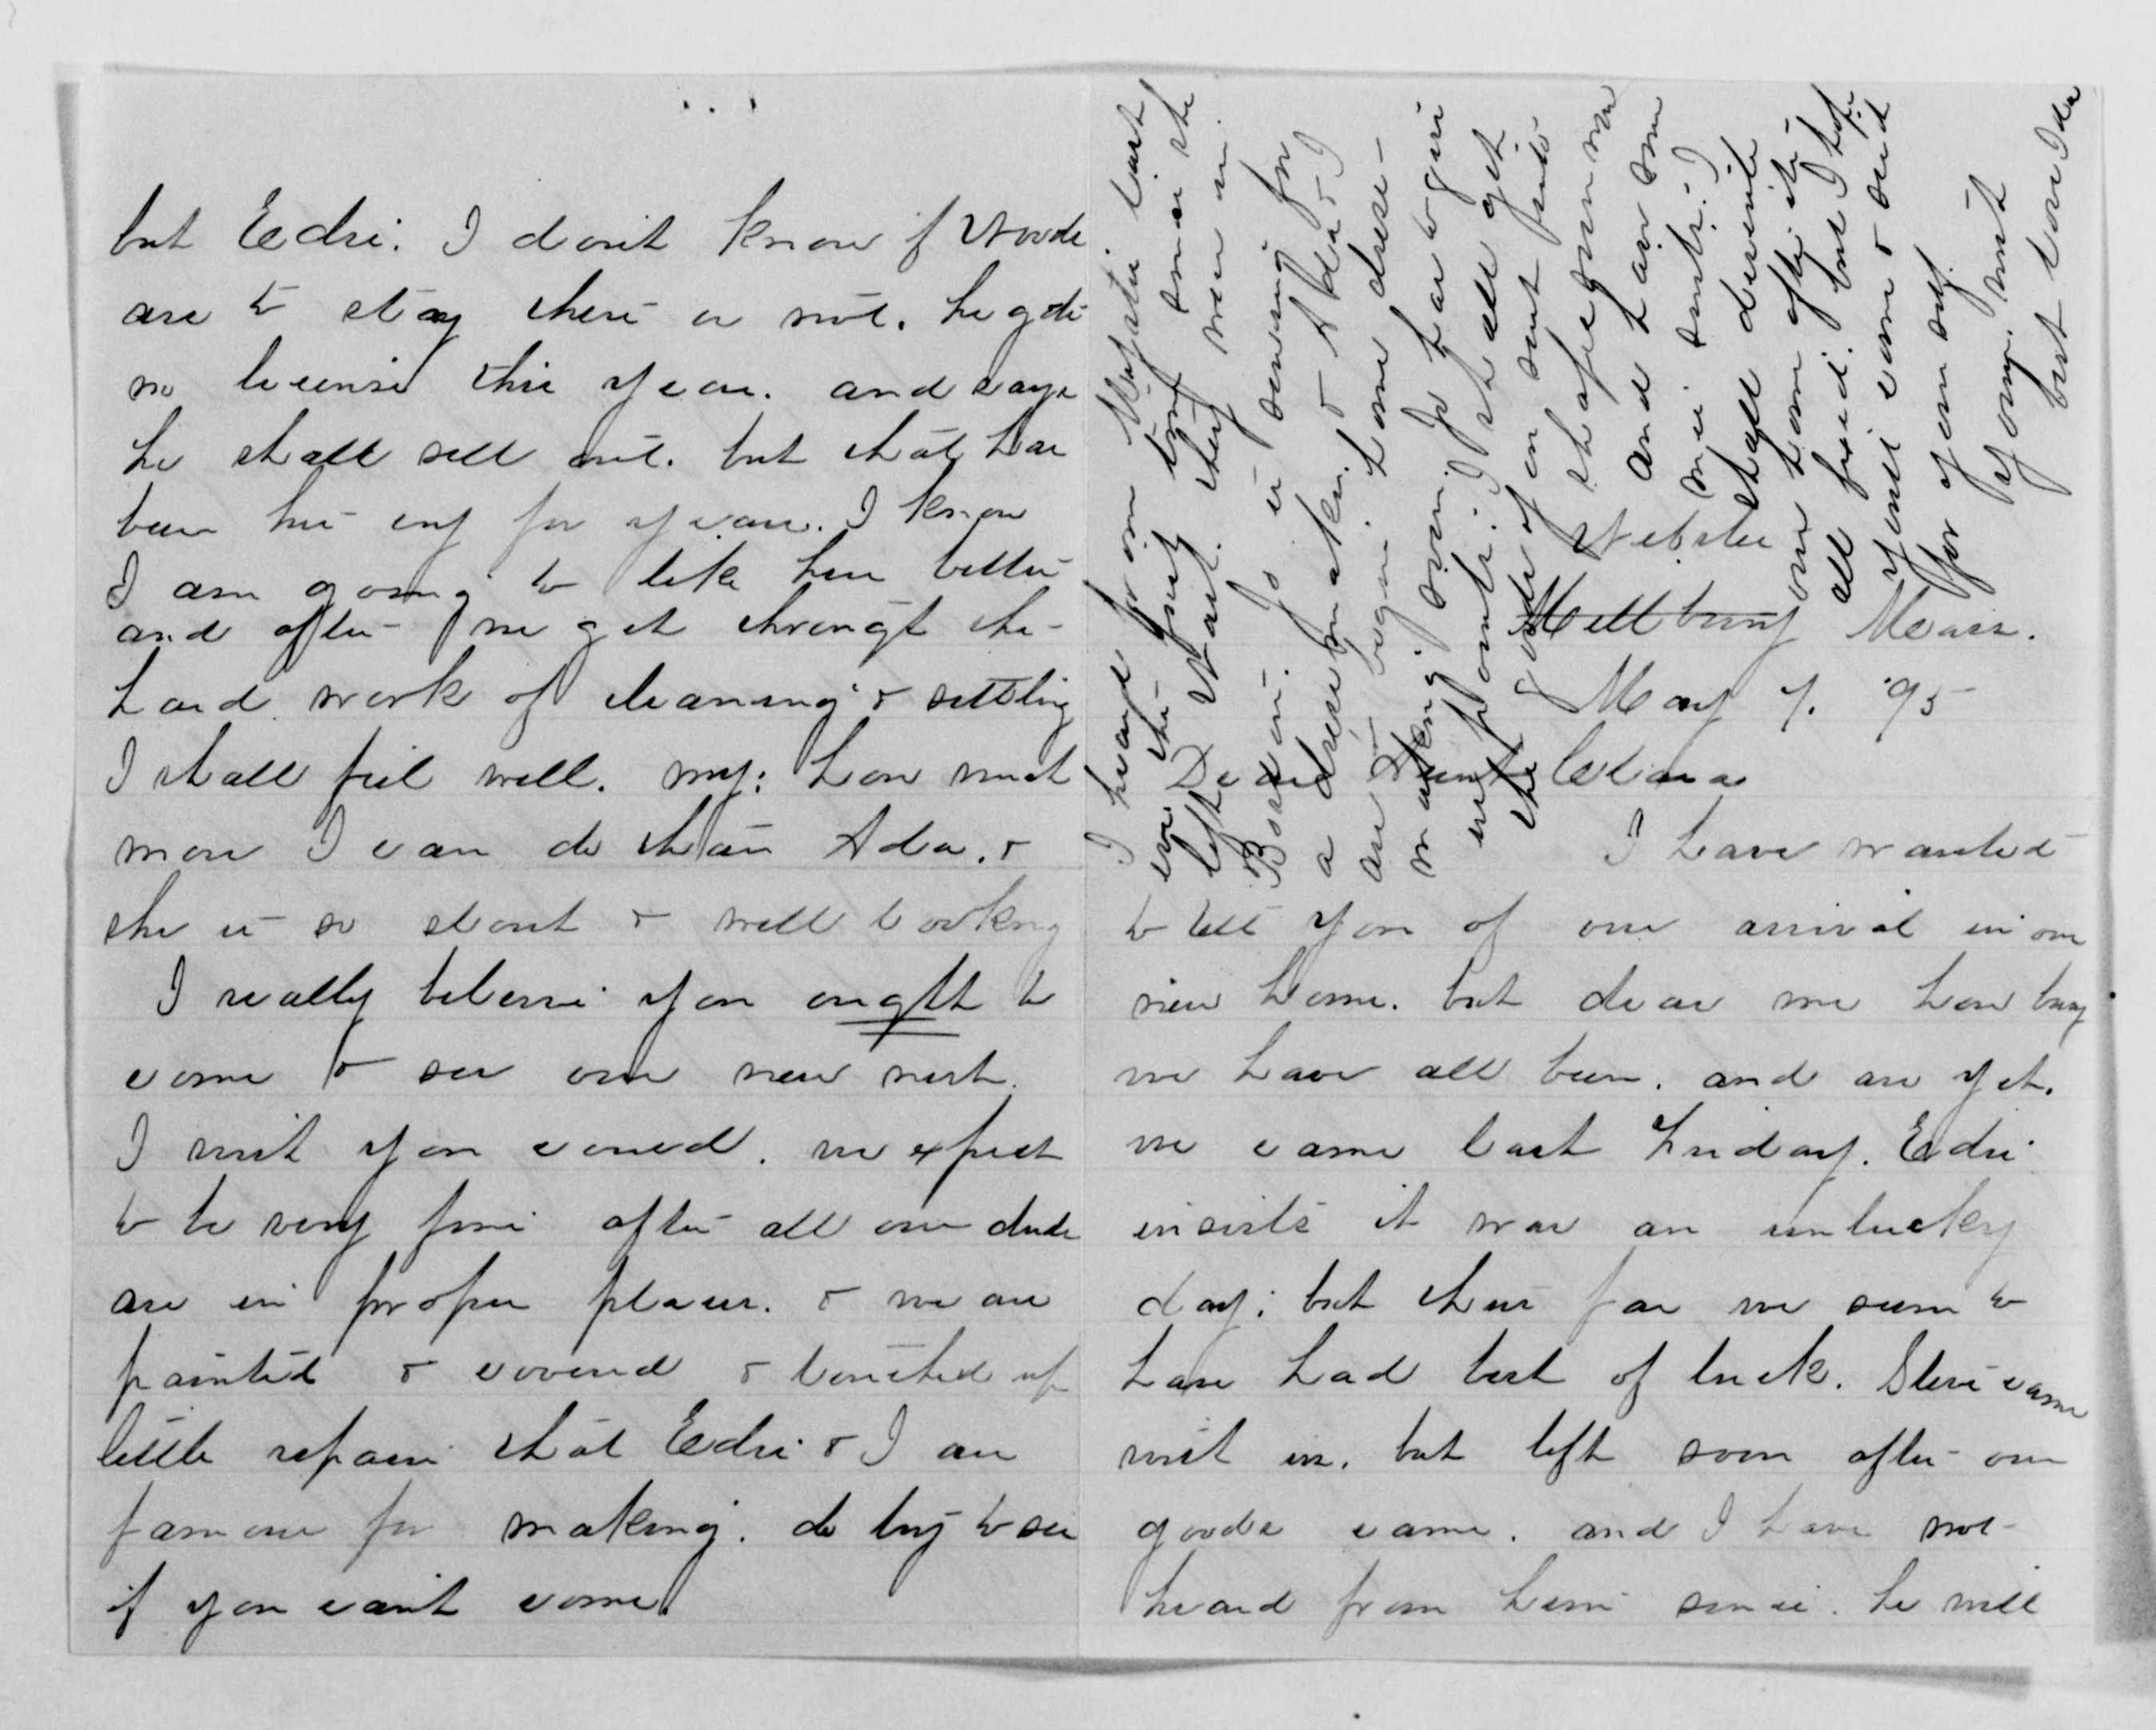 Webster
Millbury Mass.
May 7. '95
Dear Aunt Clara
I have wanted
to tell you of our arrival in our
new home. but dear me how busy
we have all been. and are yet.
we came last Friday. Edri
insists it was an unlucky
day; but thus far we seem to
have had best of luck. Steve came
with us. but left soon after our
goods came. and I have not
heard from him since. he will
but Edri. I don't know if Woods
are to stay there or not. he gets
no license this year. and says
he shall sell out. but that has
been his cry for years. I know
I am going to like here better
and after we get through the
hard work of cleaning & settling
I shall feel well. my: how much
more I can do than Ada. &
she is so stout & well looking
I really believe you ought to
come & see our new nest.
I wish you could. we expect
to be very fine after all our duds
are in proper places. & we are
painted & covered & touched up
little repairs that Edri & I are
famous for making. do try to see
if you can't come.
I heard from Mysti last
eve the first time since she
left West. they were in
Boston. Jo is sewing for
a dressmaker. & Ada & I
are to begin home dress-
making soon. Jo has to give
us points. I shall get
the
goods of on sent
shape
and have some
new suits. I
shall describe
our home after it is
all fixed. but I hope
you'll come & see it
for yourself.
yours with
best love Ida